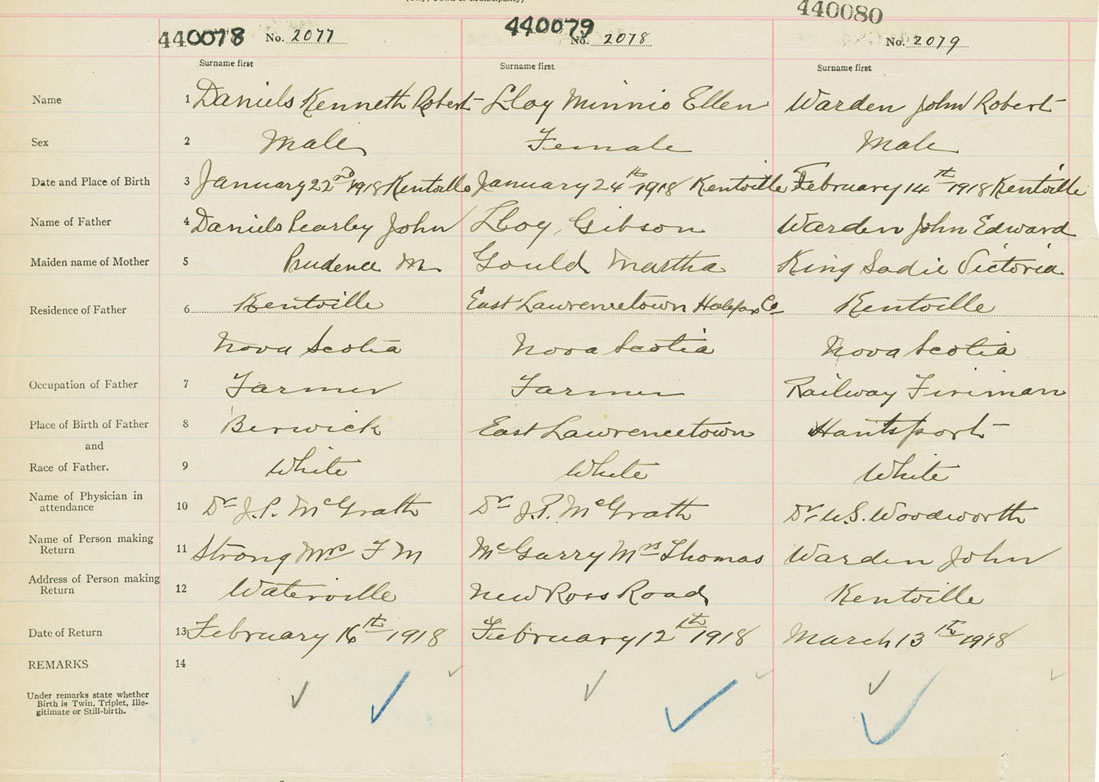 (City, Town or Municipality)
440078 No. 2077 440079 No. 2078 440080 No. 2079
Surname first Surname first Surname first
Name 1 Daniels Kenneth Robert Lloy Minnie Ellen Warden John Robert
Sex 2 Male Female Male
Date and Place of Birth 3 January 22nd 1918 Kentville January 24th 1918 Kentville February 14th 1918 Kentville
Name of Father 4 Daniels Pearley John Lloy Gibson Warden John Edward
Maiden name of Mother 5 Prudence M. Gould Martha King Sadie Victoria
Residence of Father 6 Kentville East Lawrencetown Halifax Co Kentville
Nova Scotia Nova Scotia Nova Scotia
Occupation of Father 7 Farmer Farmer Railway Fireman
Place of Birth of Father 8 Berwick East Lawrencetown Hantsport
and
Race of Father. 9 White White White
Name of Physician in
attendance 10 Dr J.P. McGrath Dr J.P. McGrath Dr W.S. Woodworth
Name of Person making
Return 11 Strong Mrs F M McGarry Mrs Thomas Warden John
Address of Person making
Return 12 Waterville New Ross Road Kentville
Date of Return 13 February 16th 1918 February 12th 1918 March 13th 1918
REMARKS 14
Under remarks state whether
Birth is Twin, Triplet, Ille-
gitimate or Still-birth.